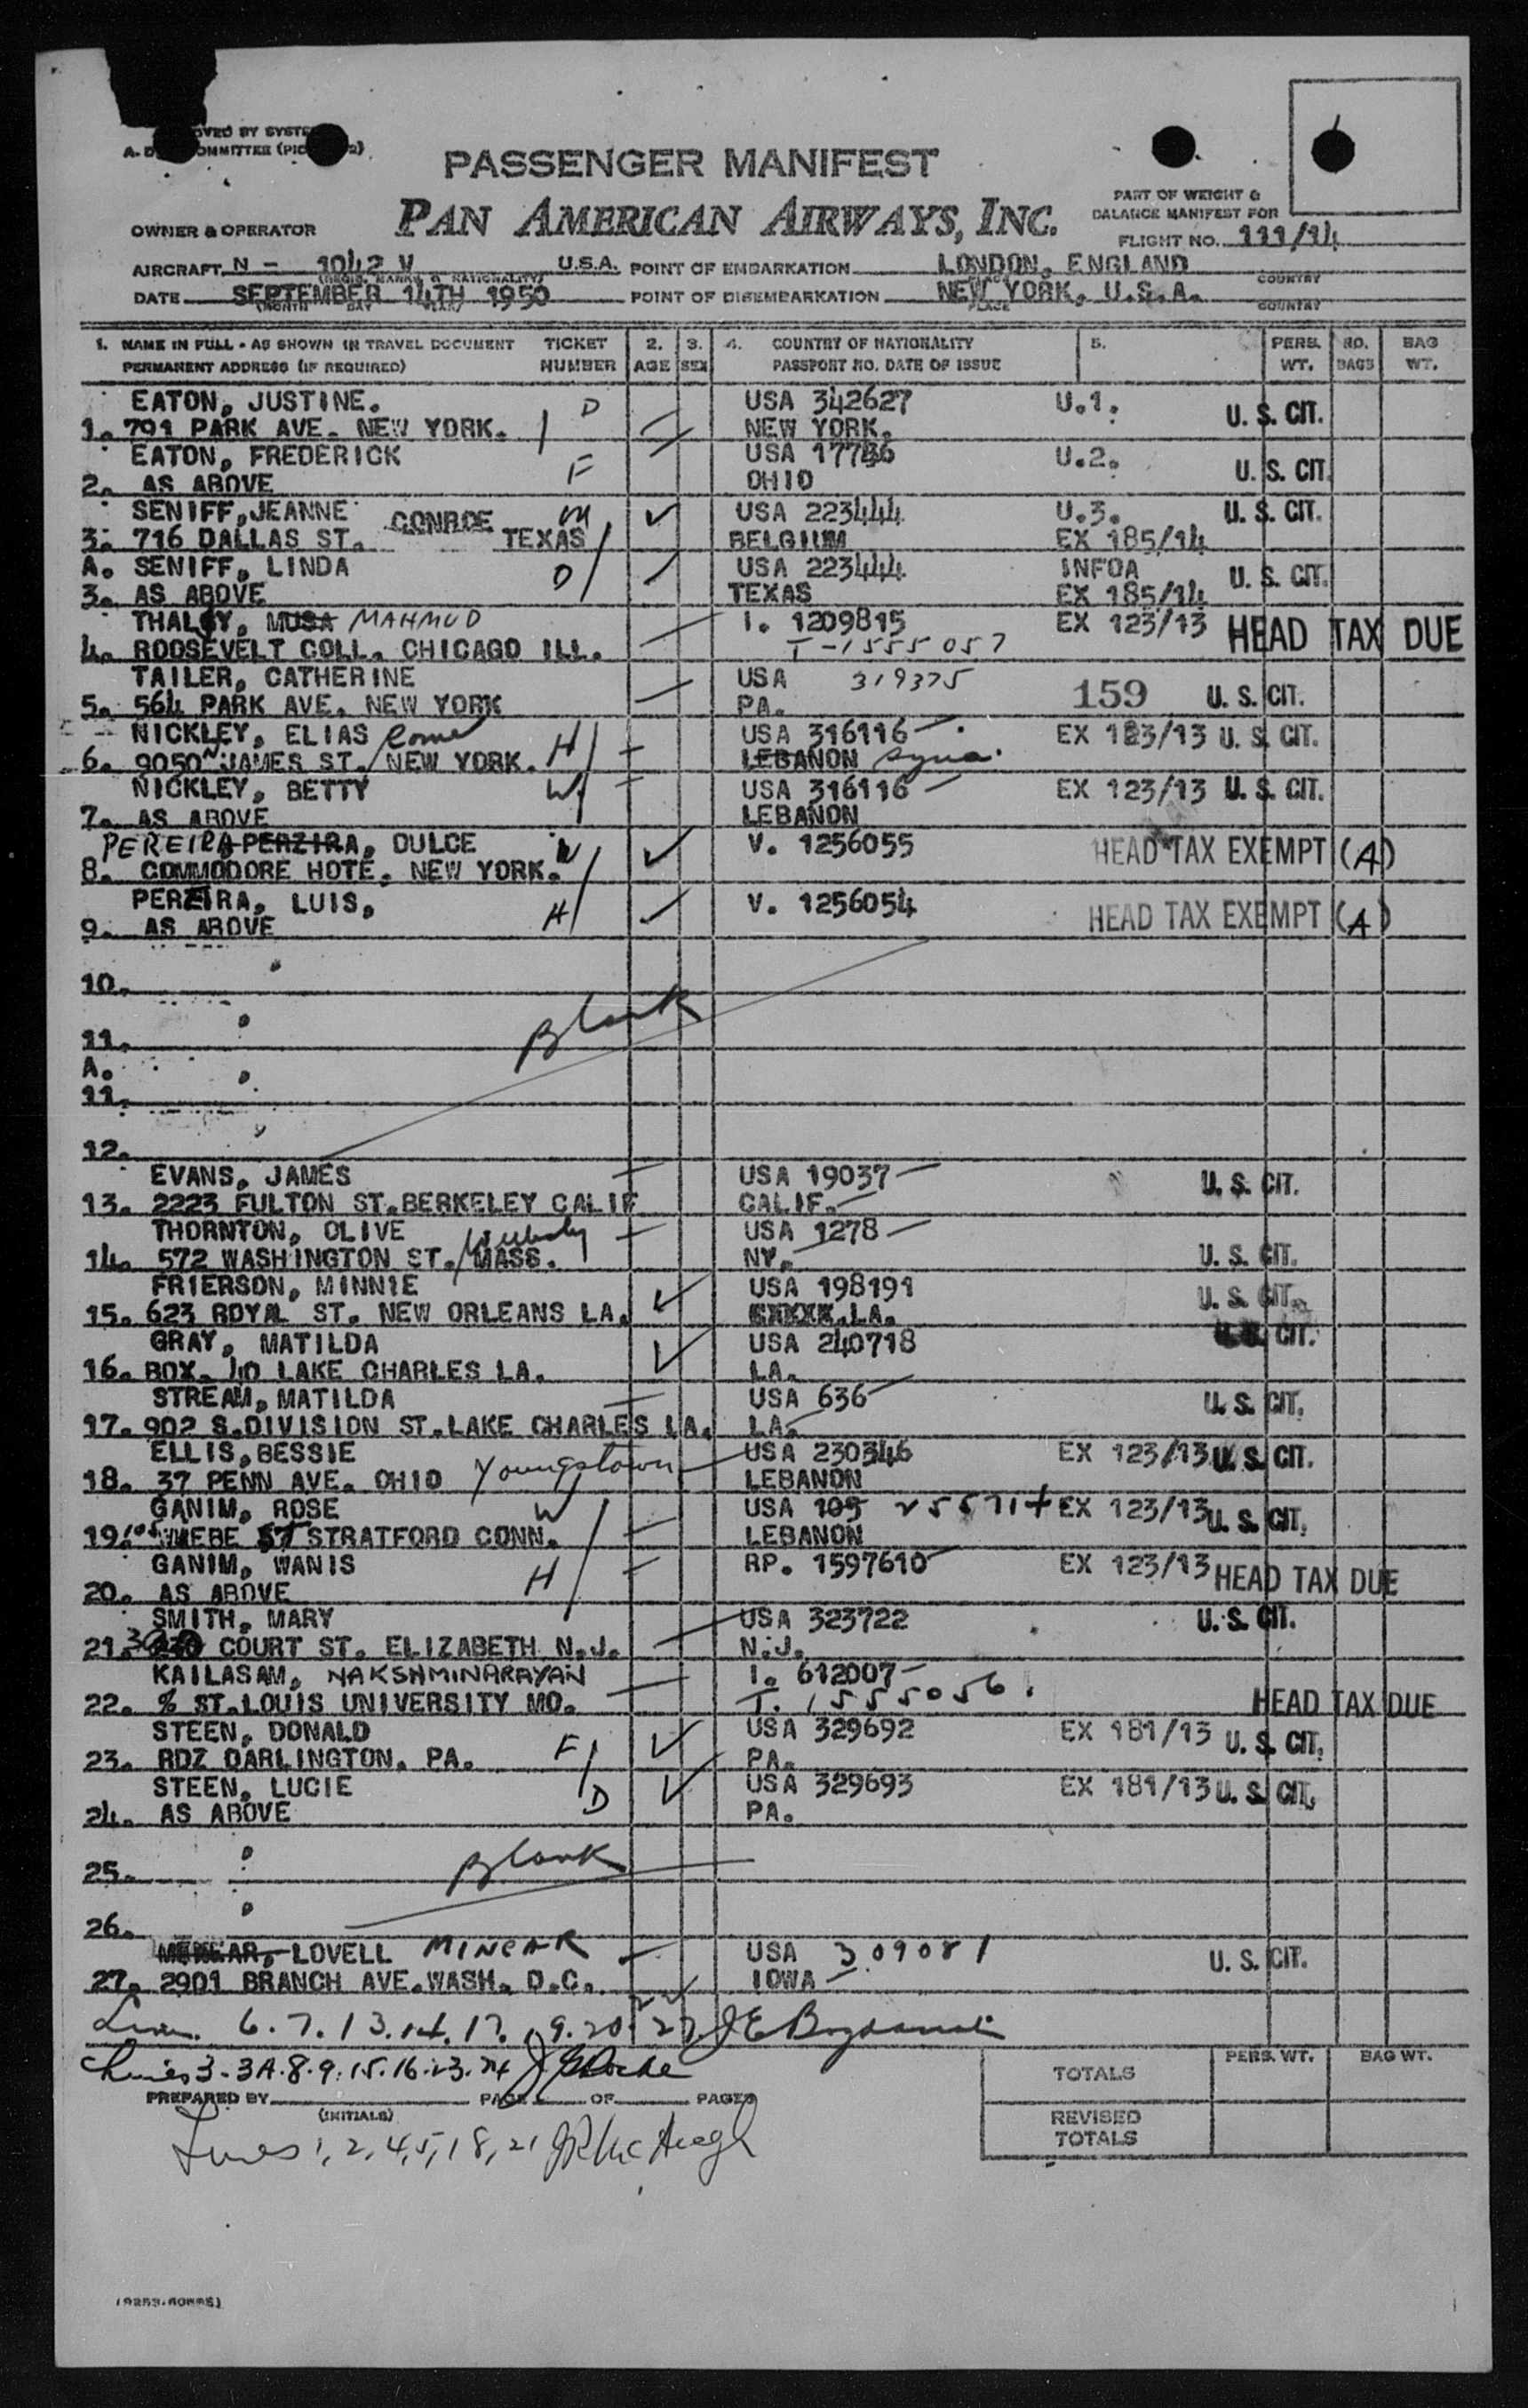 PASSENGER MANIFEST
PAN AMERICAN AIRWAYS, INC.
PART OF WEIGHT &
BALANCE MANIFEST FOR
OWNER & OPERATOR
FLIGHT NO. 111/14
AIRCRAFT N - 1042 V U.S.A. POINT OF EMBARKATION LONDON, ENGLAND
(REGIS. MARKS & NATIONALITY) PLACE COUNTRY
DATE SEPTEMBER 14TH 1950 POINT OF DISEMBARKATION NEW YORK, U.S.A.
(MONTH DAY YEAR) PLACE COUNTRY
1. NAME IN FULL - AS SHOWN IN TRAVEL DOCUMENT TICKET 2. 3. 4. COUNTRY OF NATIONALITY 5. PERS. NO. BAG
PERMANENT ADDRESS (IF REQUIRED) NUMBER AGE SEX PASSPORT NO. DATE OF ISSUE WT. BAGS WT.
EATON, JUSTINE. D USA 342627 U.1. U. S. CIT.
1. 791 PARK AVE. NEW YORK. NEW YORK.
EATON, FREDERICK F USA 17736 U.2. U. S. CIT.
2. AS ABOVE OHIO
SENIFF, JEANNE M USA 223444 U.3. U. S. CIT.
3. 716 DALLAS ST. CONROE TEXAS BELGIUM EX 185/14
A. SENIFF, LINDA D USA 223444 INFOA U. S. CIT.
3. AS ABOVE TEXAS EX 185/14
THALGY, MUSA MAHMUD I. 1209815 EX 123/13 HEAD TAX DUE
4. ROOSEVELT COLL. CHICAGO ILL. T-1555057
TAILER, CATHERINE USA 319375 159 U. S. CIT.
5. 564 PARK AVE. NEW YORK PA.
NICKLEY, ELIAS Rome H USA 316116 EX 123/13 U. S. CIT.
6. 9050 N JAMES ST. NEW YORK. LEBANON Syria.
NICKLEY, BETTY W USA 316116 EX 123/13 U. S. CIT.
7. AS ABOVE LEBANON
PEREIRA PERZIRA, DULCE W V. 1256055 HEAD TAX EXEMPT (A)
8. COMMODORE HOTE, NEW YORK.
PEREIRA, LUIS, H V. 1256054 HEAD TAX EXEMPT (A)
9. AS ABOVE
10.
Blank
11.
A.
11.
12.
EVANS, JAMES USA 19037 U. S. CIT.
13. 2223 FULTON ST. BERKELEY CALIF CALIF.
THORNTON, OLIVE USA 1278
14. 572 WASHINGTON ST. MASS. NY. U. S. CIT.
FRIERSON, MINNIE USA 198191 U. S. CIT.
15. 623 ROYAL ST. NEW ORLEANS LA. LA.
GRAY, MATILDA USA 240718 U. S. CIT.
16. BOX. 40 LAKE CHARLES LA. LA.
STREAM, MATILDA USA 636 U. S. CIT.
17. 902 S. DIVISION ST. LAKE CHARLES LA. LA.
ELLIS, BESSIE USA 230346 EX 123/13 U. S. CIT.
18. 37 PENN AVE. OHIO Youngstown LEBANON
GANIM, ROSE W USA 109 255714 EX 123/13 U. S. CIT.
19. ST STRATFORD CONN. LEBANON
GANIM, WANIS H RP. 1597610 EX 123/13 HEAD TAX DUE
20. AS ABOVE
SMITH, MARY USA 323722 U. S. CIT.
21. COURT ST. ELIZABETH N.J. N.J.
KAILASAM, NAKSHMINARAYAN I. 612007
22. % ST. LOUIS UNIVERSITY MO. T. 1555056. HEAD TAX DUE
STEEN, DONALD F USA 329692 EX 181/13 U. S. CIT.
23. RDZ DARLINGTON. PA. PA.
STEEN, LUCIE D USA 329693 EX 181/13 U. S. CIT.
24. AS ABOVE PA.
25. Blank
26.
LOVELL MINCAR USA 309081 U. S. CIT.
27. 2901 BRANCH AVE. WASH. D.C. IOWA
6. 7. 13. 14. 17. 19. 20. 22 27.
Lines 3-3A. 8. 9. 15. 16. 23. 24
PREPARED BY PAGE OF PAGES
(INITIALS)
Lines 1, 2, 4, 5, 18, 21
PERS. WT. BAG WT.
TOTALS
REVISED
TOTALS